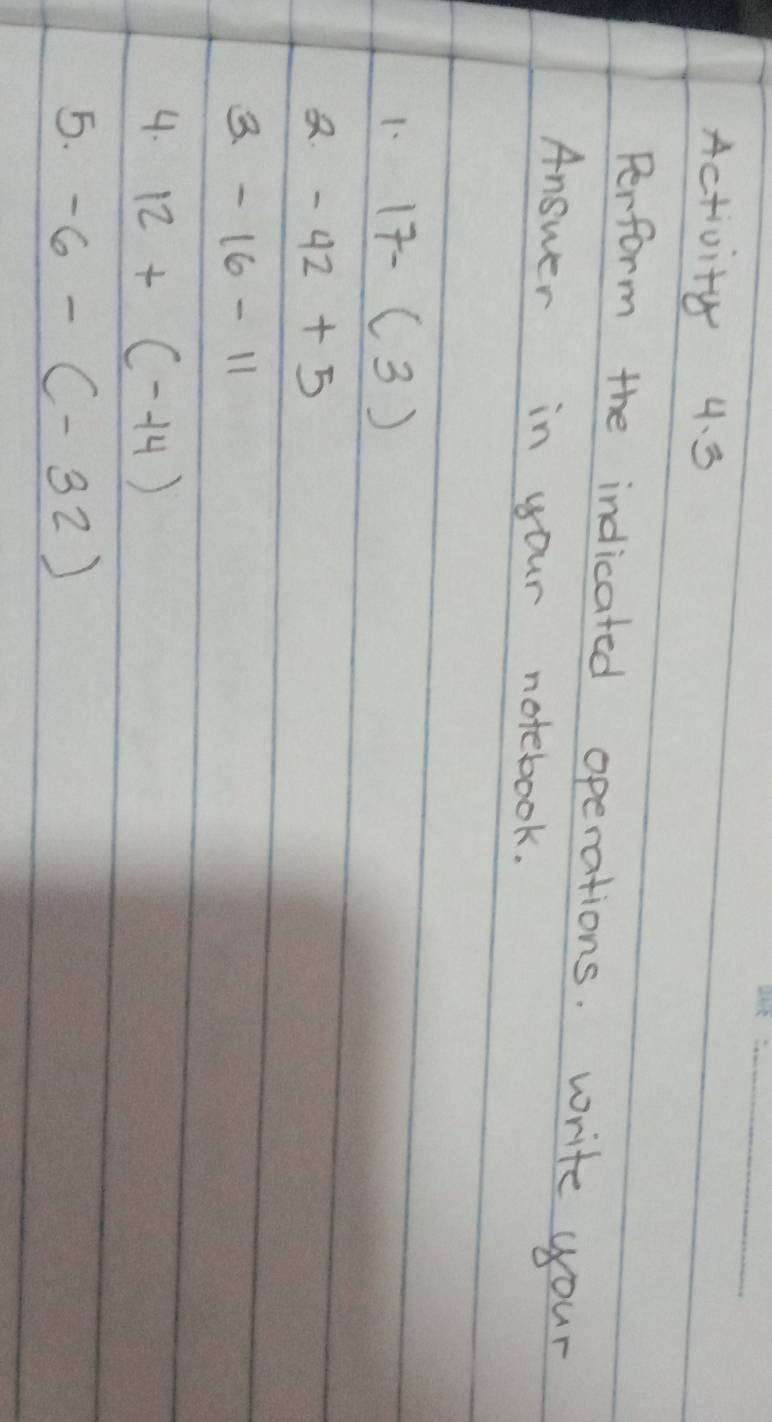 Activity 4.3
Perform the indicated operations. write your
Answer in your notebook.
1. 17-(3)
2. -42 + 5
3. -16 - 11
4. 12 + (-14)
5. -6 - (-32)